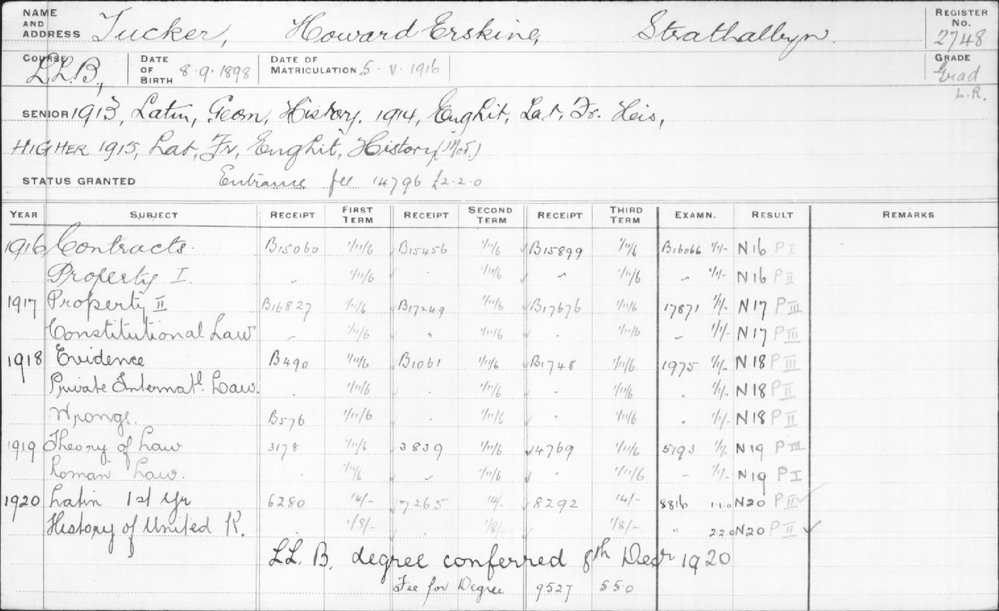 NAME AND ADDRESS Tucker, Howard Erskine, Strathalbyn. REGISTER No. 2748
COURSE LL.B, DATE OF BIRTH 8.9.1898 DATE OF MATRICULATION 5.V.1916 GRADE Grad
L.R.
SENIOR 1913, Latin, Geom, History. 1914, Eng Lit, Lat, Fr.
HIGHER 1915, Lat, Fr, Eng Lit, History (Mod.)
STATUS GRANTED Entrance fee 14796 £2-2-0
YEAR SUBJECT RECEIPT FIRST TERM RECEIPT SECOND TERM RECEIPT THIRD TERM EXAMN. RESULT REMARKS
1916 Contracts. B15060 1/11/6 B15456 1/11/6 B15899 1/11/6 B16066 1/1/- N16 P I
Property I. " 1/11/6 " 1/11/6 " 1/11/6 " 1/1/- N16 P II
1917 Property II B16827 1/11/6 B17249 1/11/6 B17676 1/11/6 17871 1/1/- N17 P III
Constitutional Law " 1/11/6 . . " 1/11/6 . 1/1/- N17 P III
1918 Evidence B490 1/11/6 B1061 1/11/6 B1748 1/11/6 1975 1/1/- N18 P III
Private Internatl. Law. . 1/11/6 . 1/11/6 . 1/11/6 . 1/1/- N18 P II
Wrongs. B576 1/11/6 . 1/11/6 . 1/11/6 . 1/1/- N18 P II
1919 Theory of Law 3178 1/11/6 3839 1/11/6 4769 1/11/6 5193 1/1/- N19 P III
Roman Law. . 1/11/6 . 1/11/6 . 1/11/6 - 1/1/- N19 P I
1920 Latin 1st Yr 6280 14/- 7265 14/- 8292 14/- 8816 1.1.0 N20 P II
History of United K. 1/8/- 1/8/- 1/8/- " 2.2.0 N20 P II ✓
LL. B. degree conferred 8th Decr 1920
Fee for Degree 9527 5.5.0